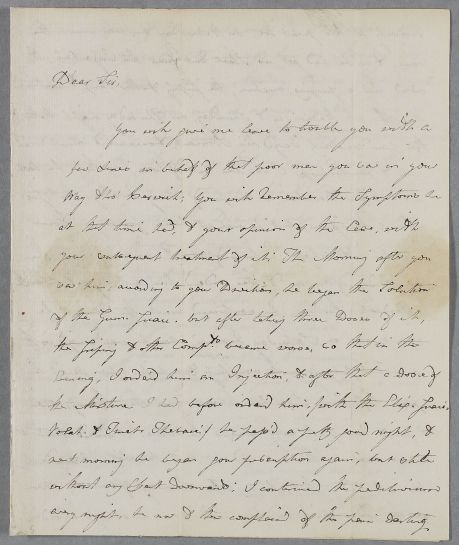 Dear Sir,
you will give me leave to trouble you with a
few lines in behalf of that poor man you saw in your
way to Berwick; You will remember the Symptoms he
at that time had, & your opinion of the Case, with
your consequent treatment of it: The Morning after you
saw him, according to your Direction, he began the Solution
of the Gum: Guaic. but after taking three Doses of it,
the Griping & other Compts became worse, so that in the
Evening, I orderd him an Injection, & after that a dose of
the Mixture I had before orderd him, with the Elix: Guaic.
Volat. & Tinct: Thebaic; he pass'd a pretty good night, &
next morning he began your prescription again, but still
without any Effect Downward: I continued the
every night, he now & then complaind of the pain darting